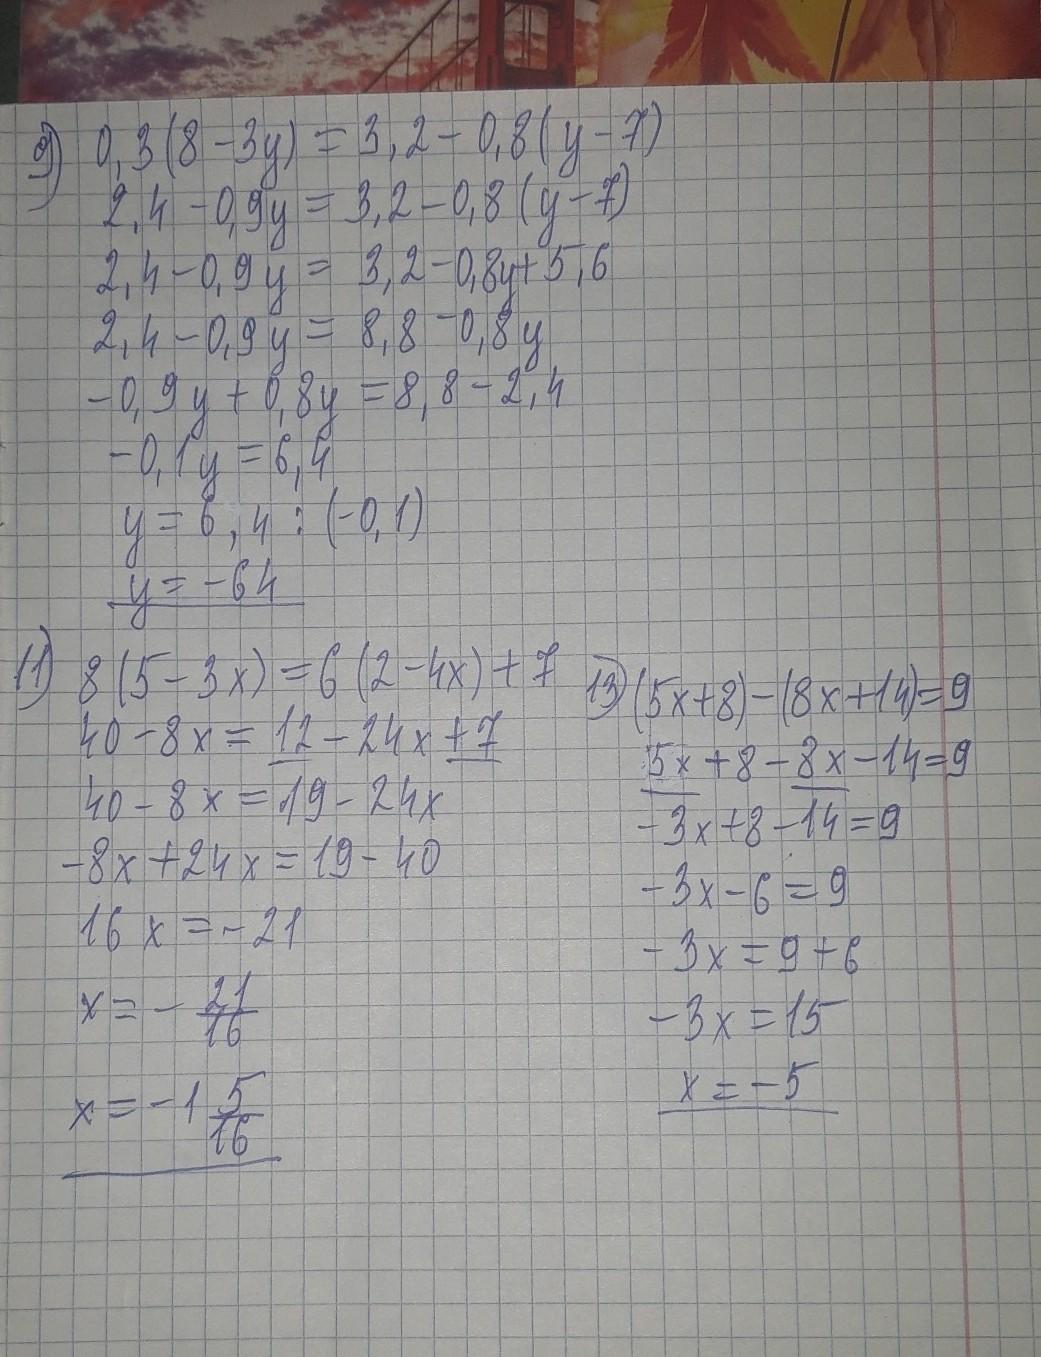 9) 0,3(8-3y) = 3,2-0,8(y-7)
2,4-0,9y = 3,2-0,8(y-7)
2,4-0,9y = 3,2-0,8y+5,6
2,4-0,9y = 8,8-0,8y
-0,9y+0,8y = 8,8-2,4
-0,1y = 6,4
y = 6,4 : (-0,1)
y = -64
11) 8(5-3x) = 6(2-4x)+7
40-8x = 12-24x+7
40-8x = 19-24x
-8x+24x = 19-40
16x = -21
x = - 21/16
x = -1 5/16
13) (5x+8)-(8x+14)=9
5x+8-8x-14=9
-3x+8-14=9
-3x-6=9
-3x=9+6
-3x=15
x=-5